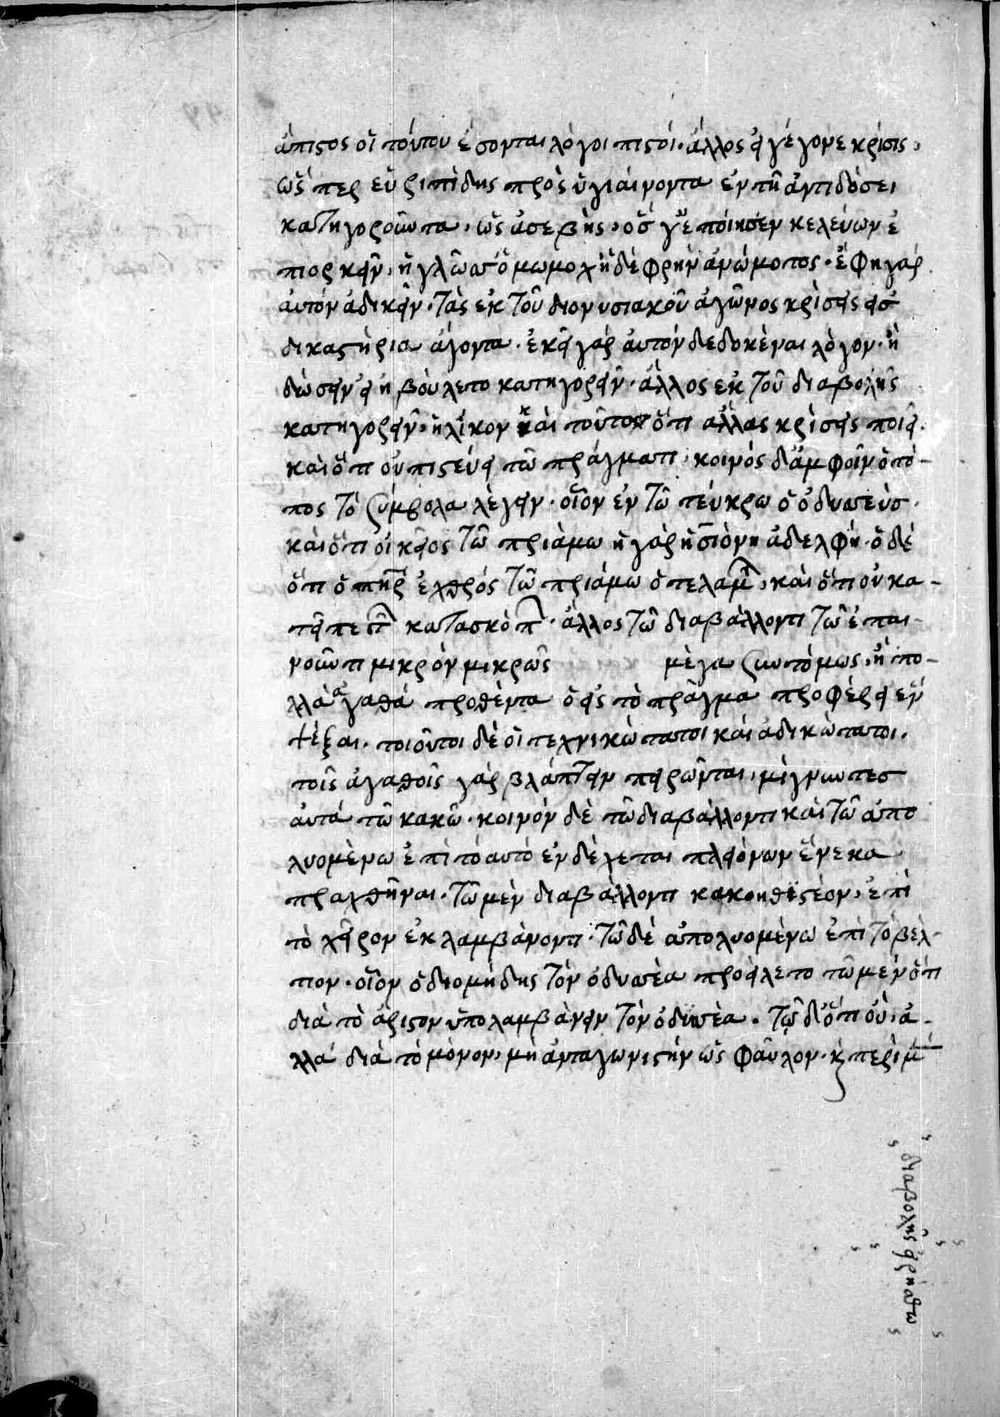 ἄπιστος οἱ τούτου ἔσονται λόγοι πιστοί. ἄλλος εἰ γέγονε κρίσις,
ὥσπερ εὐριπίδης πρὸς ὑγιαίνοντα ἐν τῇ ἀντιδόσει
κατηγοροῦντα, ὡς ἀσεβής, ὅς γε ἐποίησεν κελεύων ἐ
πιορκεῖν, ἡ γλῶσσ' ὀμώμοχ' ἡ δὲ φρὴν ἀνώμοτος. ἔφη γὰρ
αὐτὸν ἀδικεῖν. τὰς ἐκ τοῦ διονυσιακοῦ ἀγῶνος κρίσεις εἰς
δικαστήρια ἄγοντα. ἐκεῖ γὰρ αὐτὸν δεδοκέναι λόγον. ἢ
δώσειν εἰ ἠβούλετο κατηγορεῖν. ἄλλος ἐκ τοῦ διαβολῆς
κατηγορεῖν, ἡλίκον καὶ τοῦτο ὅτι ἄλλας κρίσεις ποιεῖ.
καὶ ὅτι οὐ πιστεύει τῷ πράγματι. κοινὸς δ' ἀμφοῖν ὁ τό-
πος τὸ σύμβολα λέγειν. οἷον ἐν τῷ τεύκρω ὁ ὀδυσσεὺς.
καὶ ὅτι οἰκεῖος τῷ πριάμω ἡ γὰρ ἡσιόνη ἀδελφή. ὁ δὲ
ὅτι ὁ πηρ ἐχθρὸς τῷ πριάμω ὁ τελαμ, καὶ ὅτι οὐ κα-
τεῖπε τ κατασκόπ. ἄλλος τῷ διαβάλλοντι τῷ ἐπαι-
νοῦντι μικρὸν μικρῶς μέγα συντόμως, ἢ πο-
λλὰ ἀγαθὰ προθέντα ὃ εἰς τὸ πρᾶγμα προφέρει ἓν
ψέξαι. τοιοῦτοι δὲ οἱ τεχνικώτατοι καὶ ἀδικώτατοι.
τοῖς ἀγαθοῖς γὰρ βλάπτειν πειρῶνται, μιγνύντες
αὐτὰ τῷ κακῷ. κοινὸν δὲ τῷ διαβάλλοντι καὶ τῷ ἀπο
λυομένω ἐπὶ τὸ αὐτὸ ἐνδέχεται πλειόνων ἕνεκα
πραχθῆναι. τῷ μὲν διαβάλλοντι κακοηθιστέον, ἐπὶ
τὸ χεῖρον ἐκλαμβάνοντι. τῷ δὲ ἀπολυομένω ἐπὶ τὸ βέλ-
τιον. οἷον ὁ διομήδης τὸν ὀδυσσέα προείλετο τῷ μὲν ὅτι
διὰ τὸ ἄριστον ὑπολαμβάνειν τὸν ὀδυσσέα. τῷ δ' ὅτι οὐ, ἀ-
λλὰ διὰ τὸ μόνον, μὴ ἀνταγωνιστὴν ὡς φαῦλον. κ περὶ μ
διαβολῆς εἰρήσθω